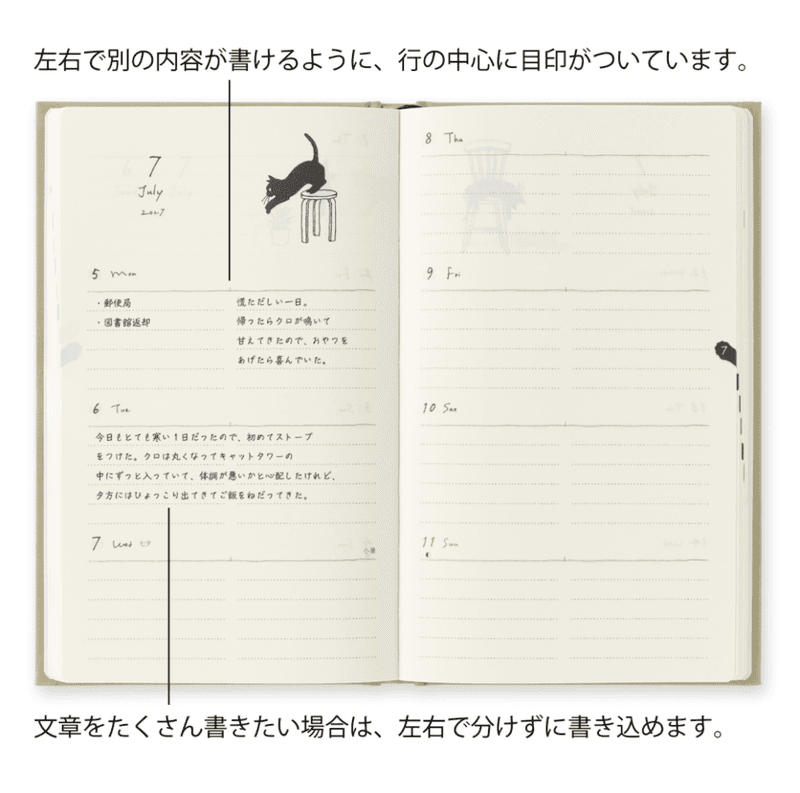 左右で別の内容が書けるように、行の中心に目印がついています。
7
July
2027
5 Mon
・郵便局
・図書館返却
慌ただしい一日。
帰ったらクロが鳴いて
甘えてきたので、おやつを
あげたら喜んでいた。
6 Tue
今日もとても寒い1日だったので、初めてストーブ
をつけた。クロは丸くなってキャットタワーの
中にずっと入っていて、体調が悪いかと心配したけれど、
夕方にはひょっこり出てきてご飯をねだってきた。
7 Wed 七夕
小暑
8 Thu
9 Fri
10 Sat
11 Sun
7
文章をたくさん書きたい場合は、左右で分けずに書き込めます。